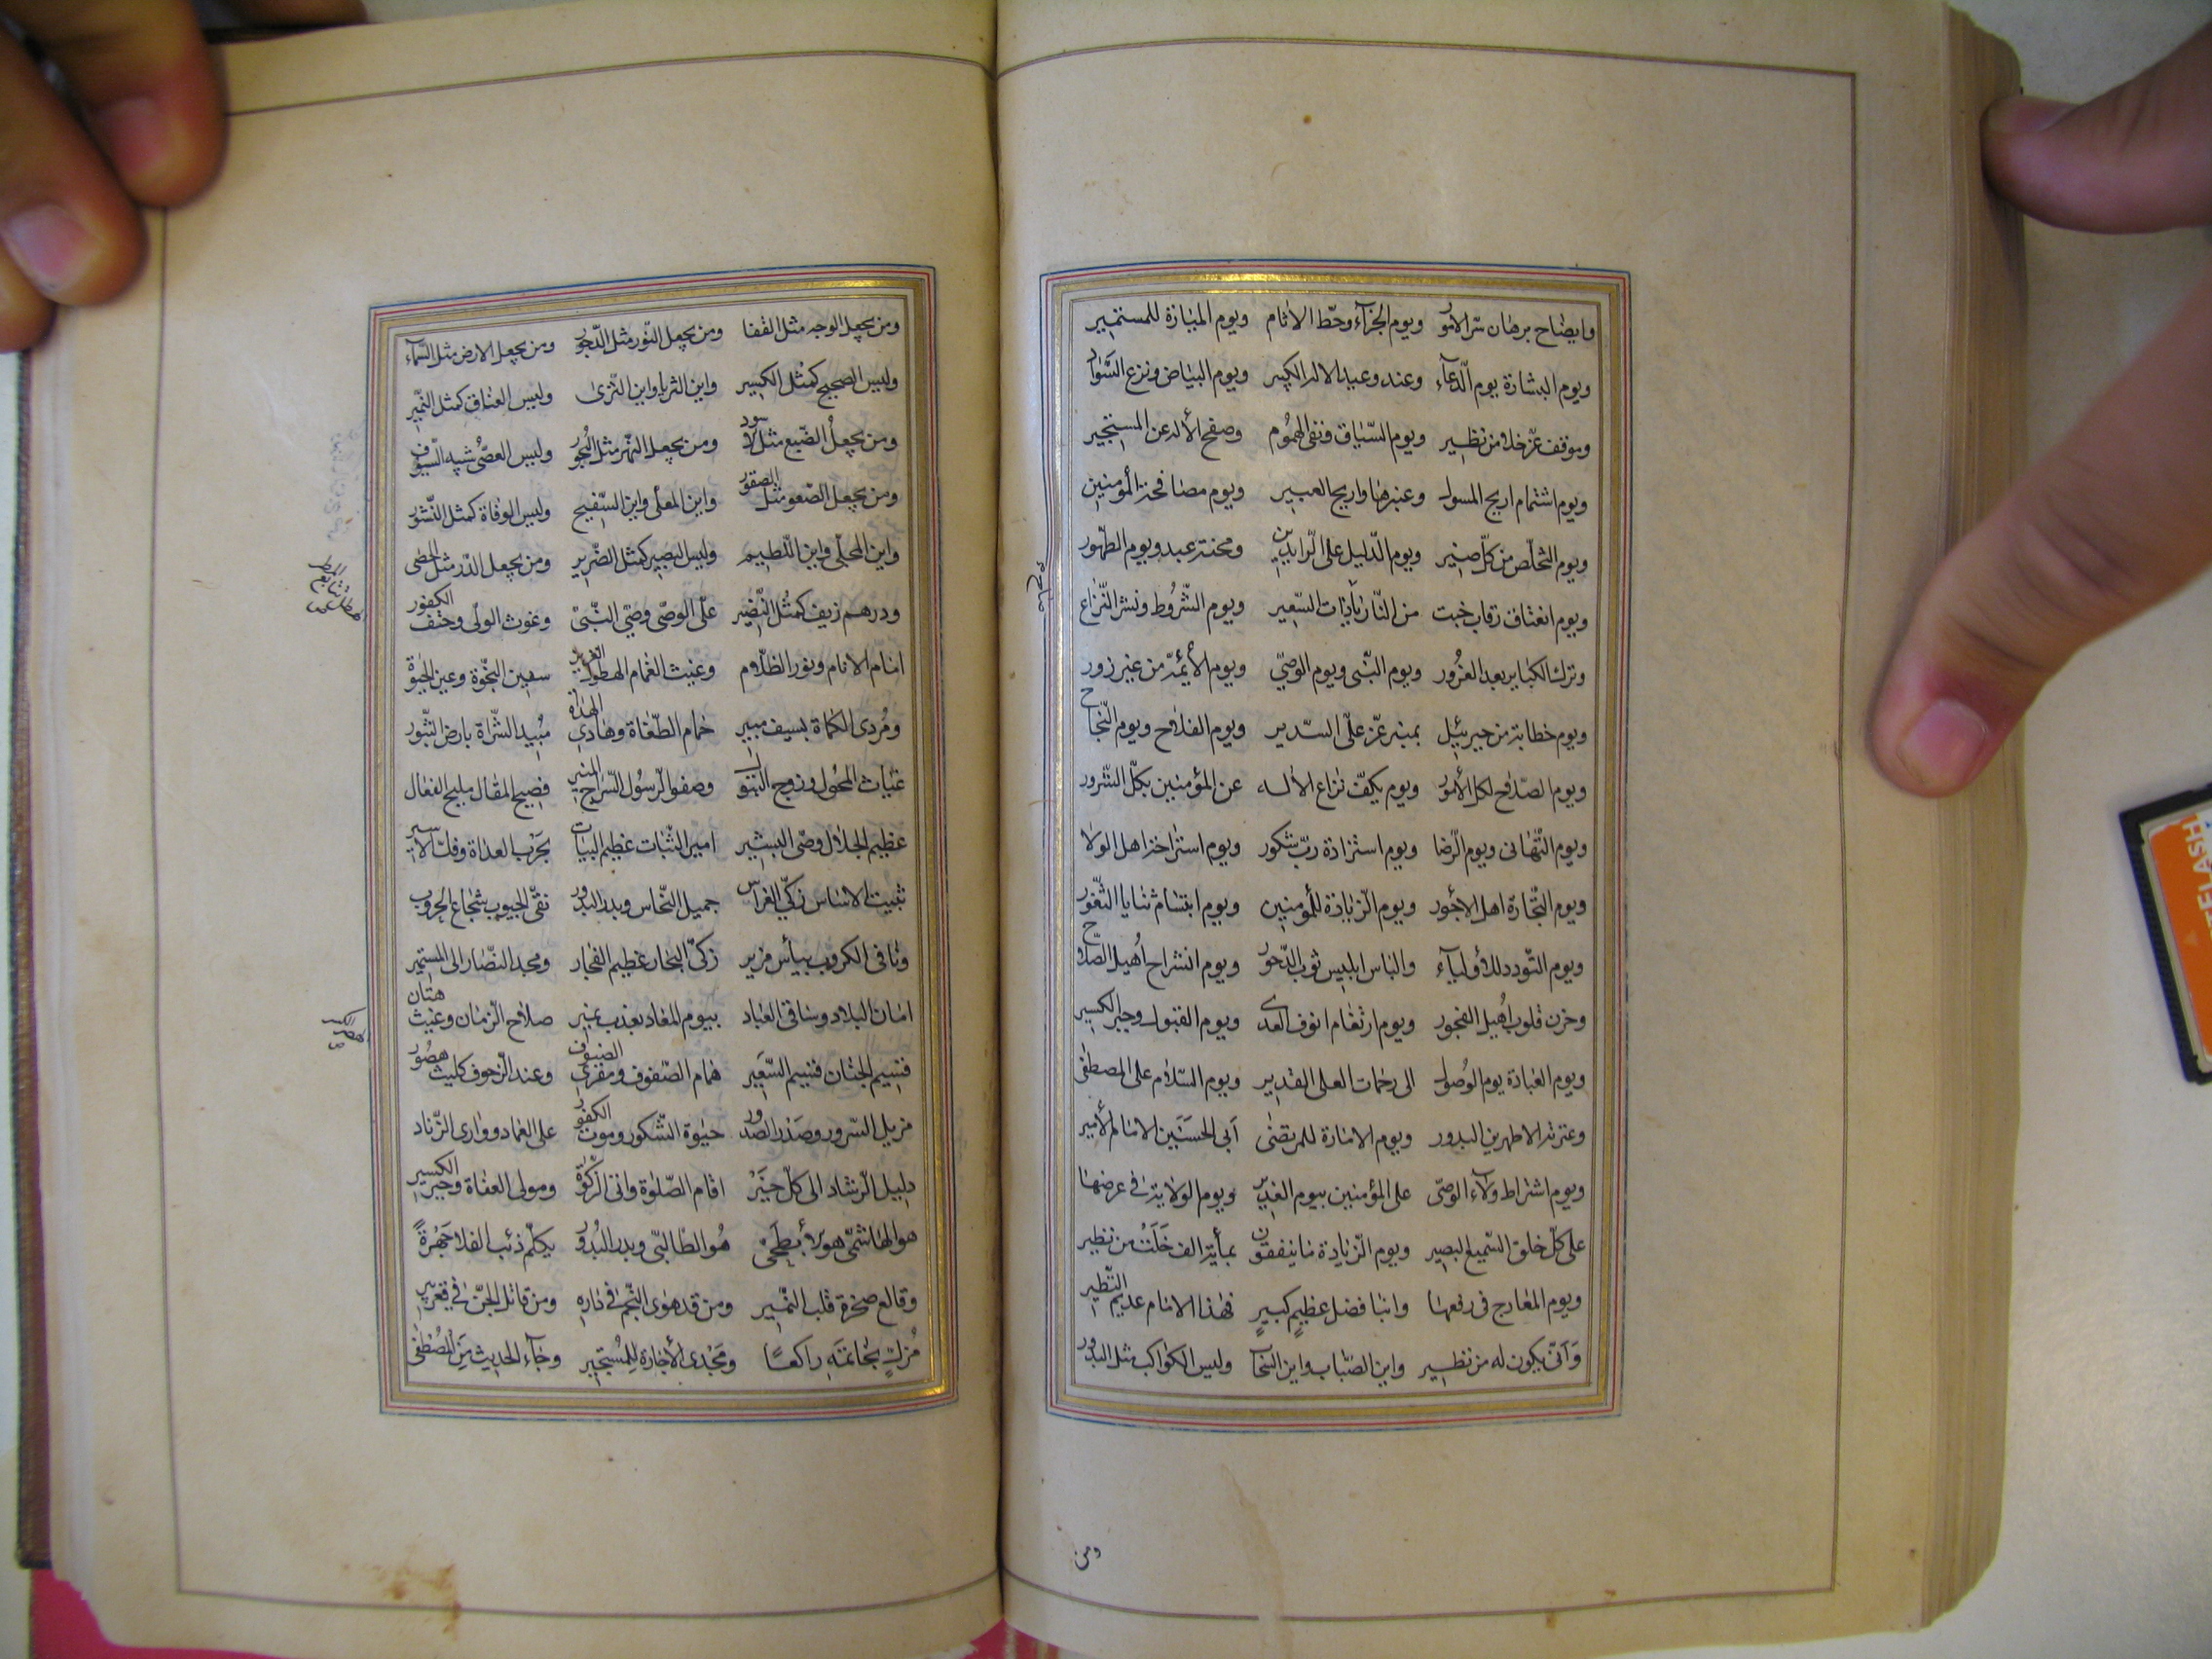 وايضاح برهان سرّ الامور ويوم الجزاء وحطّ الاثام ويوم المبازة للمستمير
ويوم البشارة يوم الدّعاء وعند وعيد الاله الكبير ويوم البياض ونزع السّواد
وموقف عزّ خلا من نظير ويوم السّباق ونفى الهموم وصفح الأله عن المستجير
ويوم اشتمام اريج المسوك وعنبرها واريج العبير ويوم مصافحة المؤمنين
ويوم التخلّص من كلّ ضير ويوم الدّليل على الرّايدين ومحنة عبد ويوم الطّهور
ويوم انعتاق رقاب خبت من النّار يا ذات السّعير ويوم الشّروط ونشر النّزاع
وترك الكباير بعد الغرور ويوم النّبى ويوم الوصىّ ويوم الأئمّة من غير زور
ويوم خطابة من جبرئيل بمنبر عزّ علىّ السّدير ويوم الفلاح ويوم النّجاح
ويوم الصّلاح لكل الأمور ويوم يكفّ نزاع الأله عن المؤمنين بكلّ الشّرور
ويوم التّهانى ويوم الرّضا ويوم استزادة ربّ شكور ويوم استراحة اهل الولا
ويوم التّجارة اهل الاجور ويوم الزّيادة للمؤمنين ويوم ابتسام ثنايا الثّغور
ويوم التّودد للأولياء والباس ابليس ثوب الدّحور ويوم انشراح أهيل الصّلاح
وحزن قلوب أهيل الفجور ويوم ارتغام انوف العدى ويوم القبول وجبر الكسير
ويوم العبادة يوم الوصول الى رحمات العلى القدير ويوم السّلام على المصطفى
وعترته الاطهرين البدور ويوم الامارة للمرتضى أبى الحسنين الامام الأمير
ويوم اشتراط ولاء الوصىّ على المؤمنين بيوم الغدير ويوم الولاية فى عرضها
على كلّ خلق السّميع البصير ويوم الزّيادة ما ينفقون بمأية الف خلت من نظير
ويوم المعارج فى رفعها وانبا فضل عظيم كبير فهذا الامام عديم النّظير
وَأنّى يكون له من نظير واين الضّباب واين السّحاب وليس الكواكب مثل البدور
ومن
ومن يجعل الوجه مثل القفا ومن يجعل النّور مثل الدّجور ومن يجعل الارض مثل السّماء
وليس الصحيح كمثل الكسير واين الثريا واين الثّرى وليس العناق كمثل النّمير
ومن يجعل الضّبع مثل الاسود ومن يجعل النّهر مثل البحور وليس العصىُّ شبه السّيوف
ومن يجعل الصّعو مثل الصقور واين المعلّى واين السّفيح وليس الوفاة كمثل النّشور
واين المحلّى واين اللّطيم وليس البصير كمثل الضّرير ومن يجعل الدّر مثل الحصى
ودرهم زيف كمثل النّضير علىّ الوصّى وصىّ النّبىّ وغوث الولّى وحتف الكفور
امام الانام ونور الظلام وغيث الغمام الهطول الغزير سفين النّجوة وعين الحيوة
ومُردى الكماة بسيف مبير حمام الطّغاة وهادى الهداة مُبيد الشّراة بارض الثّبور
غياث المحول وزوج البتول وصفو الرّسول السّراج المنير فصيح المقال مليح الفعال
عظيم الجلال وصى البشير امير الثّبات عظيم البيات بحرب العداة وفكّ الاسير
ثبيت الاساس زكىّ الغراس جميل النّحاس وبدر البدور نقىّ الجيوب شجاع الحروب
ونافى الكروب ببأس مزير زكىّ النجار عظيم الفخار ومجد النضار الى المستمير
امان البلاد وساقى العباد بيوم المعاد بعذب نمير صلاح الزّمان وغيث هتان
قسيم الجنان قسيم السّعير همام الصّفوف ومقرى الضيوف وعند الزّحوف كليث هصُور
مزيل السّرور وصدر الصّدور حيوة الشّكور وموت الكفور على العماد ووارى الزّناد
دليل الرّشاد الى كلّ خَير اقام الصّلوة واتى الزّكوة ومولى العفاة وجبر الكسير
هو الهاشمىّ هو الأبطحى هُو الطّالبىّ وبدر البُدور يكلّم ذئب الفلا جَهْرةً
وقالع صخرة قلب النّمير ومن قد هوى النّجم فى داره ومن قاتل الجنّ فى قعر بير
مُزكٍّ بخاتمه راكعًا ومَجْدى الأجارة للمُستجير وجاء الحديث مِنَ المُصْطفى